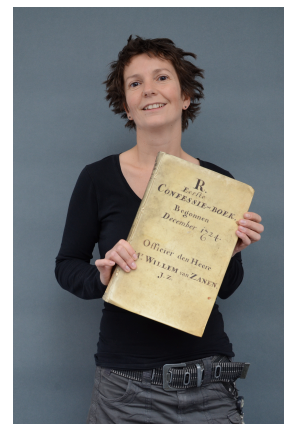 R.
Eerste
CONFESSIE-BOEK.
Begonnen
December 1724.
Officier den Heere
WILLEM van ZANEN
J. z.